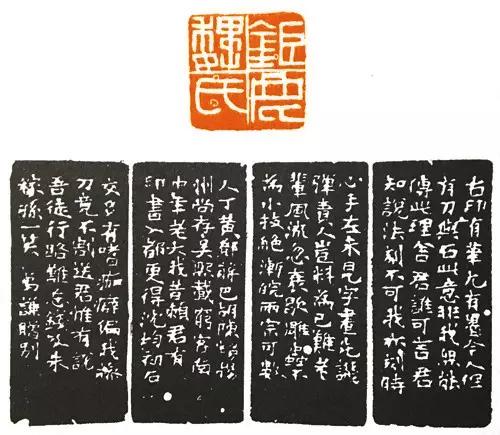 鉅鹿
魏氏
古印有筆尤有墨今人但
有刀與石此意非我無能
傳此理舍君誰可言君
知說法刻不可我亦刻時
心手左未見字畫先譏
彈責人豈料為己難老
輩風流忽衰歇雕蟲不
為小技絕浙皖兩宗可數
人丁黃鄧蔣巴胡陳揚
州尚存吳熙載窮客南
中年老大我昔贈君有
印書入都更得沈均初石
交多有嗜痂癖偏我操
刀竟不割送君惟有說
吾徒行路難
稼孫一笑 謙贈別